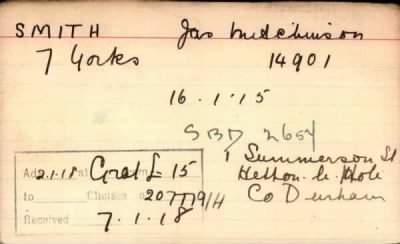 SMITH Jas Hutchinson
7 Yorks 14901
16.1.15
SBD 2654
1 Summerson St
Hetton le Hole
Co Durham
2.1.18 Grat £ 15
to Chelsea 207719/H
Received 7.1.18